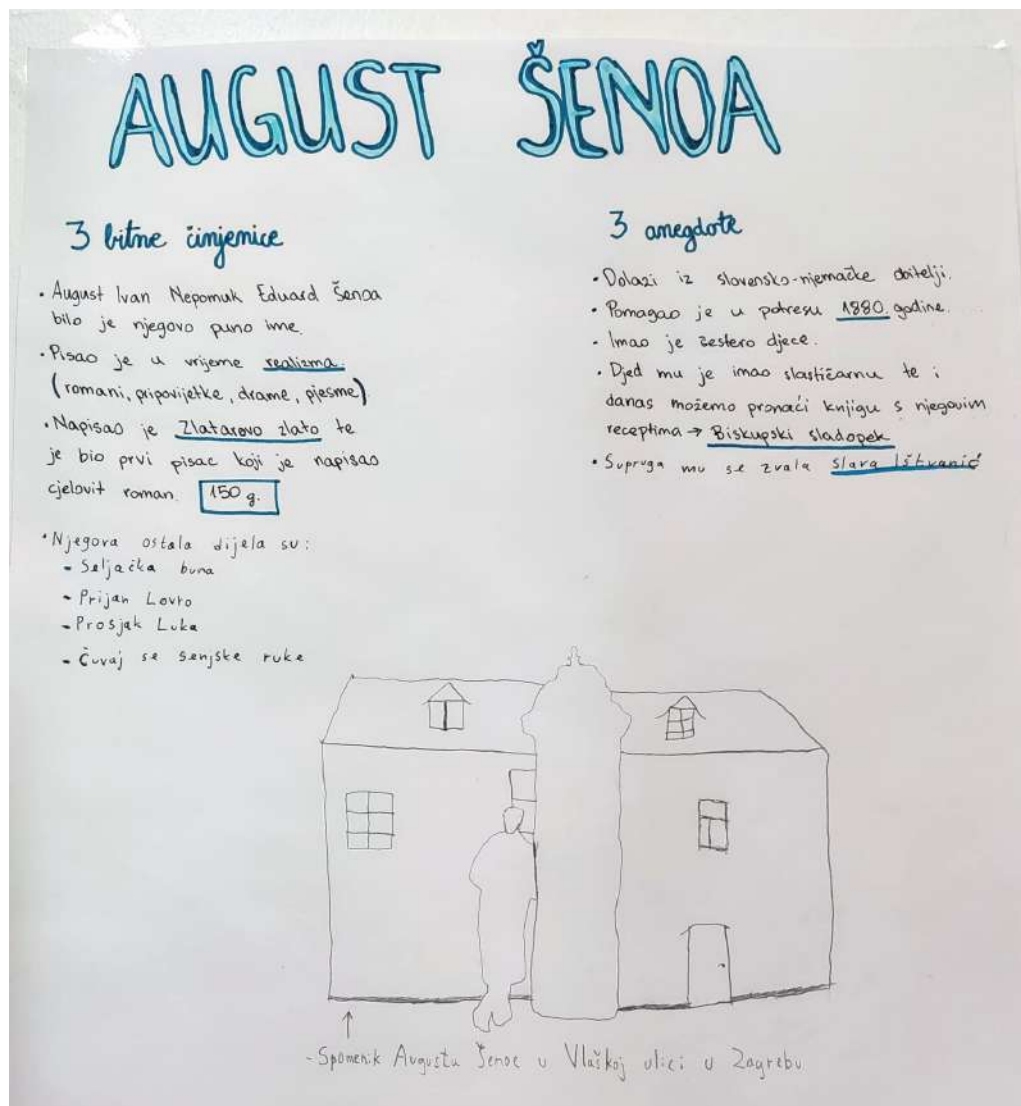 AUGUST ŠENOA
3 bitne činjenice
• August Ivan Nepomuk Eduard Šenoa
bilo je njegovo puno ime.
• Pisao je u vrijeme realizma.
(romani, pripovijetke, drame, pjesme)
• Napisao je Zlatarovo zlato te
je bio prvi pisac koji je napisao
cjelovit roman. 150 g.
• Njegova ostala dijela su:
- Seljačka buna
- Prijan Lovro
- Prosjak Luka
- Čuvaj se senjske ruke
3 anegdote
• Dolazi iz slovensko-njemačke obitelji.
• Pomagao je u potresu 1880. godine.
• Imao je šestero djece.
• Djed mu je imao slastičarnu te i
danas možemo pronaći knjigu s njegovim
receptima → Biskupski sladopek
• Supruga mu se zvala slava Ištvanić
- Spomenik Augustu Šenoe u Vlaškoj ulici u Zagrebu